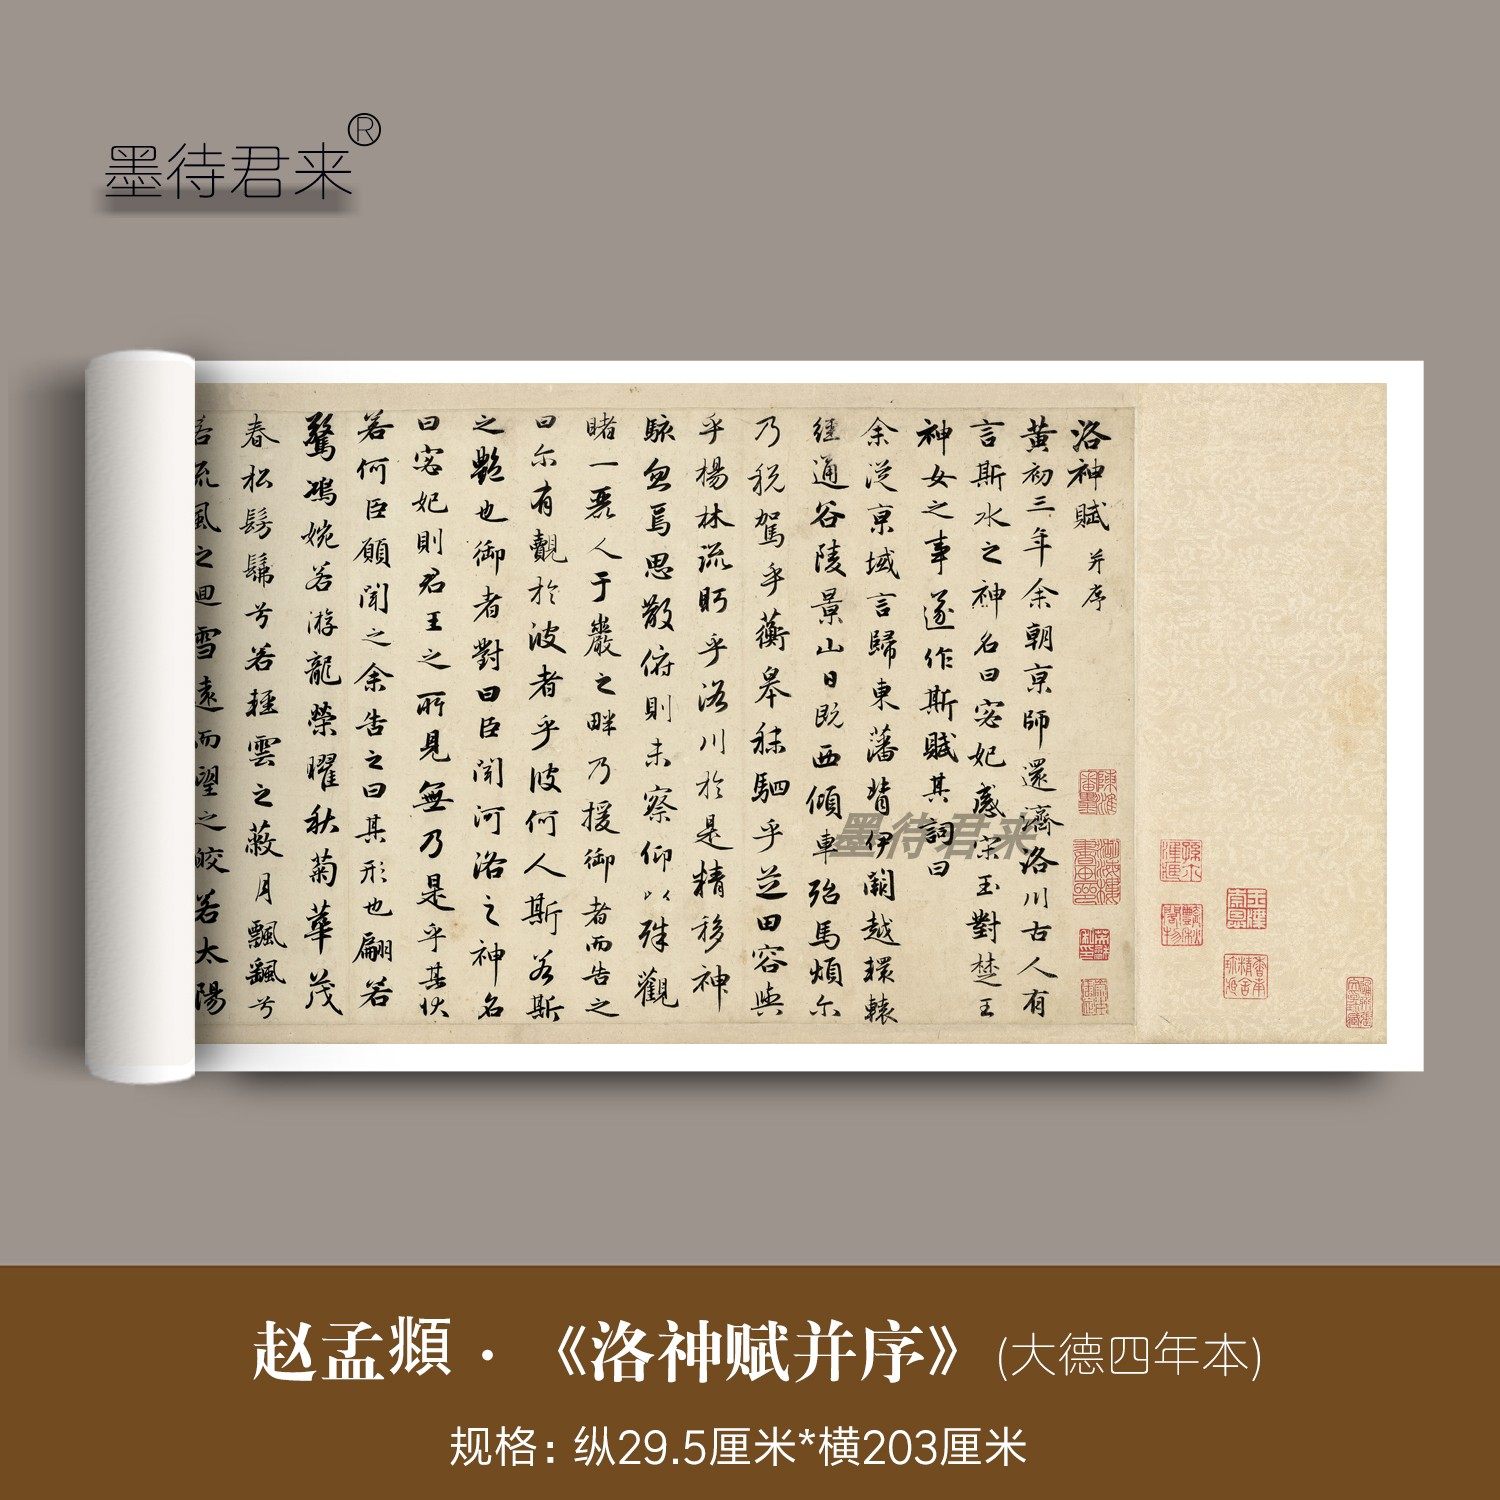 墨待君来®
洛神賦 并序
黄初三年余朝京師還濟洛川古人有
言斯水之神名曰宓妃感宋玉對楚王
神女之事遂作斯賦其詞曰
余從京域言歸東藩背伊闕越轘轅
經通谷陵景山日既西傾車殆馬煩尔
乃税駕乎蘅皋秣駟乎芝田容與
乎楊林流眄乎洛川於是精移神
駭忽焉思散俯則未察仰以殊觀
睹一麗人于巖之畔乃援御者而告之
曰尔有覿於彼者乎彼何人斯若斯
之豔也御者對曰臣聞河洛之神名
曰宓妃則君王之所見無乃是乎其狀
若何臣願聞之余告之曰其形也翩若
驚鴻婉若游龍榮曜秋菊華茂
春松髣髴兮若輕雲之蔽月飄颻兮
若流風之迴雪遠而望之皎若太陽
墨待君来
赵孟頫·《洛神赋并序》(大德四年本)
规格：纵29.5厘米*横203厘米